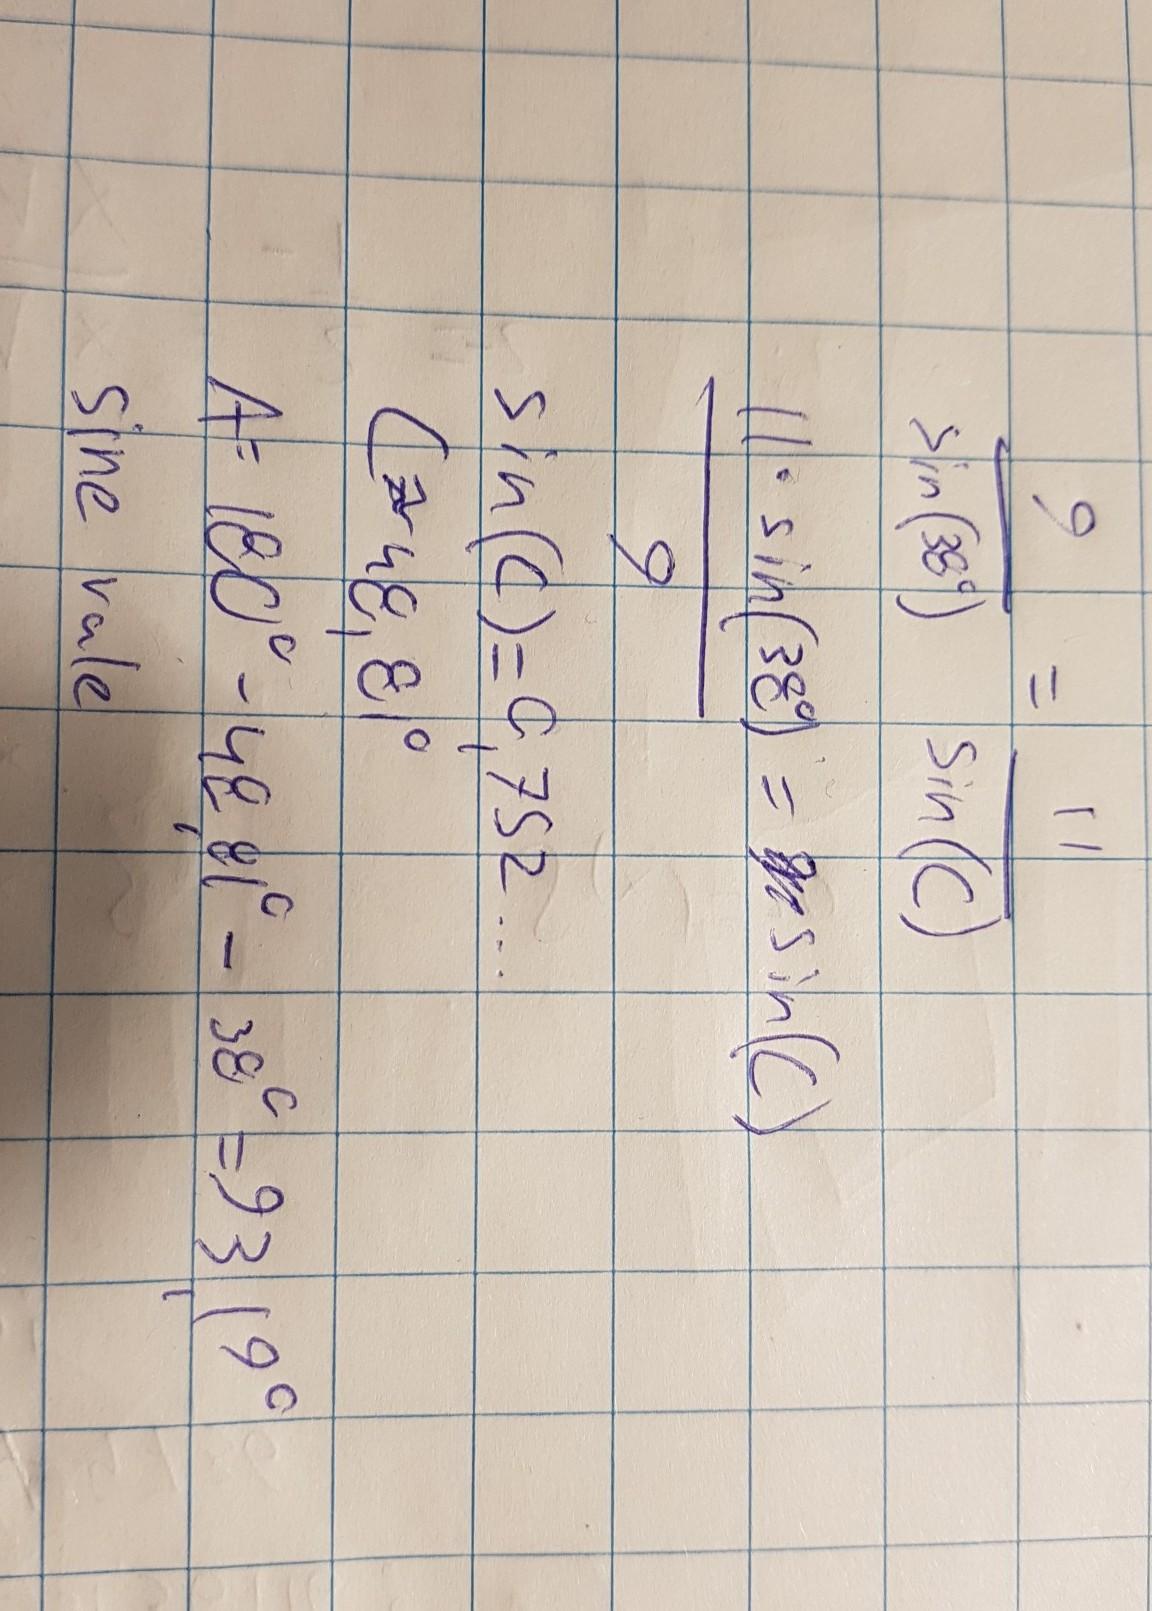 9 = 11
sin(38°) sin(C)
11·sin(38°) = sin(C)
9
sin(C)=0,752...
C≈48,81°
A= 180° - 48,81° - 38° = 93,19°
Sine vale